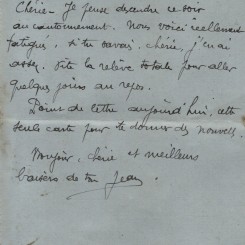 Chérie – Je pense descendre ce soir
au cantonnement. Nous voici réellement
fatigués, si tu savais, chérie, j'en ai
assez. Vite la relève totale pour aller
quelques jours au repos.
Point de lettre aujourd'hui, cette
seule carte pour te donner des nouvelles.
Bonjour, chérie et meilleurs
baisers de ton Jean.